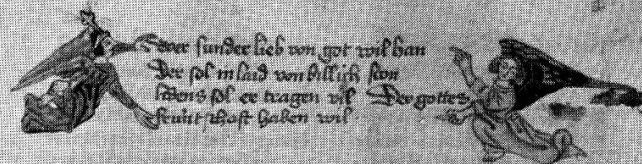 Swer sunder lieb von got wil han
Der sol in laid von billich ston
lidens sol er tragen vil Der gottes
frúnt schaft haben wil